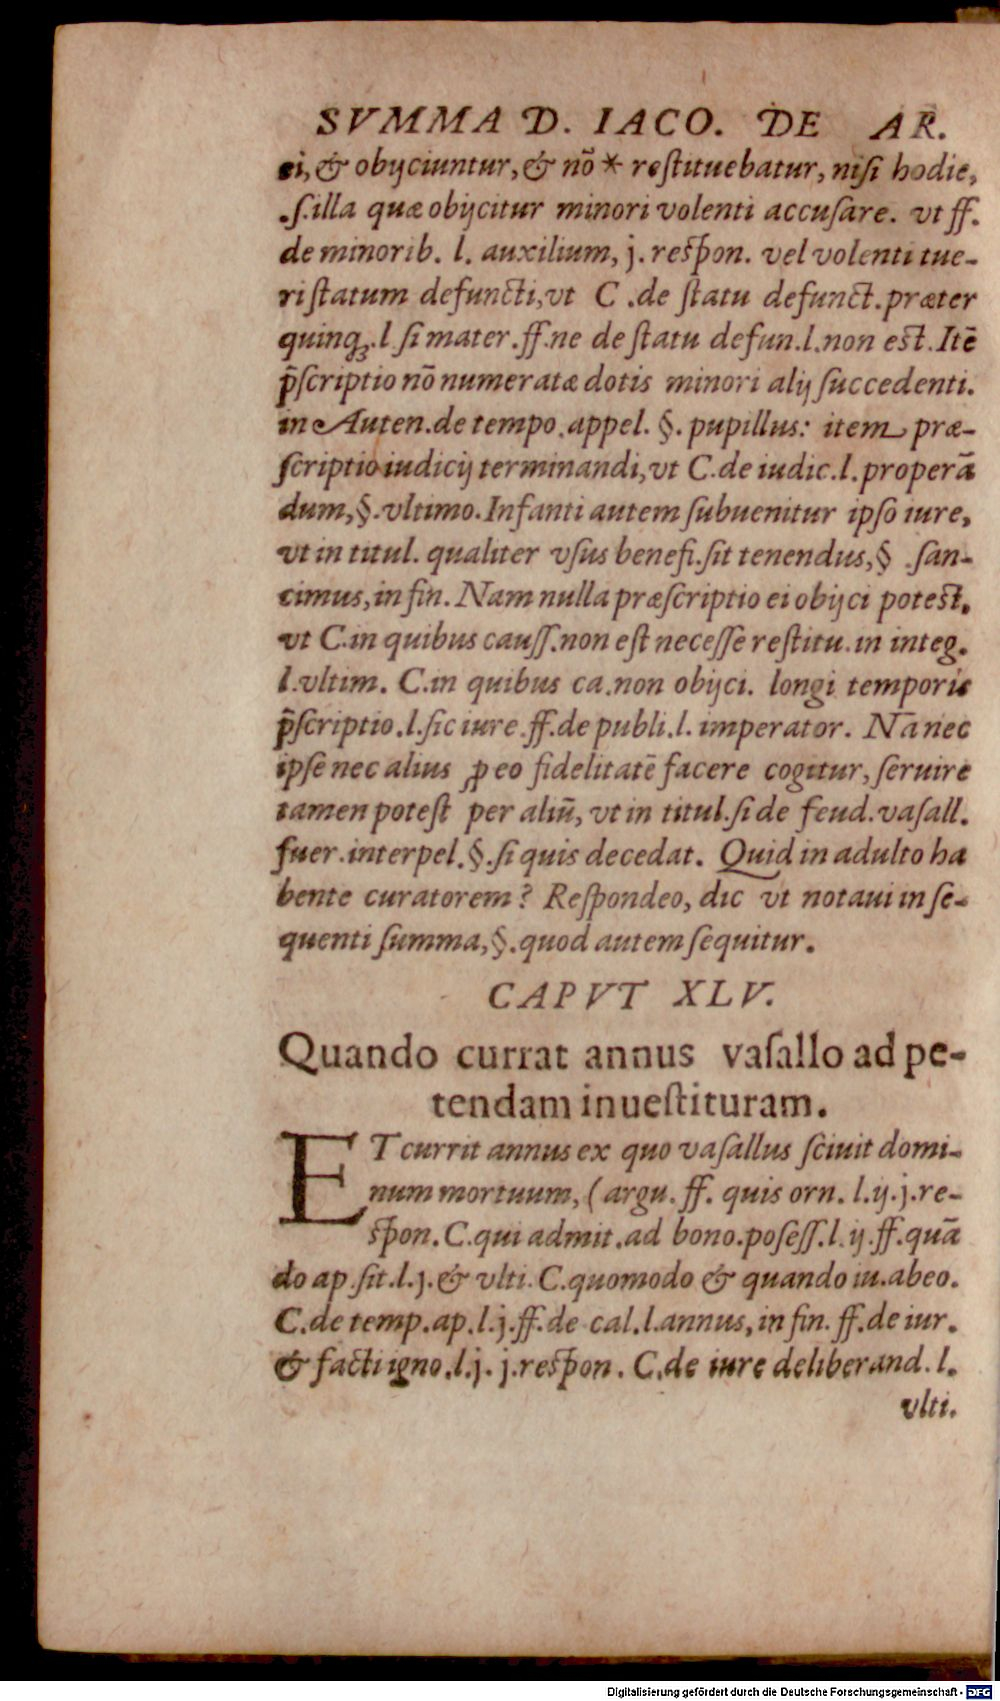 SVMMA D. IACO. DE AR.
ei, & obijciuntur, & nõ * reſtituebatur, niſi hodie,
.ſ. illa quæ obijcitur minori volenti accuſare. vt ff.
de minorib. l. auxilium, j. reſpon. vel volenti tue-
ri ſtatum defuncti, vt C .de ſtatu defunct. præter
quinq;. l ſi mater. ff. ne de ſtatu defun. l. non eſt. Itẽ
p̃ſcriptio nõ numeratæ dotis minori alij ſuccedenti.
in Auten. de tempo. appel. §. pupillus: item præ-
ſcriptio iudicij terminandi, vt C. de iudic. l. properã
dum, §. vltimo. Infanti autem ſubuenitur ipſo iure,
vt in titul. qualiter vſus benefi. ſit tenendus, § .ſan-
cimus, in fin. Nam nulla præſcriptio ei obijci poteſt.
vt C. in quibus cauſſ. non eſt neceſſe reſtitu. in integ.
l. vltim. C. in quibus ca. non obijci. longi temporis
p̃ſcriptio. l. ſic iure. ff. de publi. l. imperator. Nã nec
ipſe nec alius ꝓ eo fidelitatẽ facere cogitur, ſeruire
tamen poteſt per aliũ, vt in titul. ſi de feud. vaſall.
fuer. interpel. §. ſi quis decedat. Quid in adulto ha
bente curatorem? Reſpondeo, dic vt notaui in ſe-
quenti ſumma, §. quod autem ſequitur.
CAPVT XLV.
Quando currat annus vaſallo ad pe-
tendam inueſtituram.
ET currit annus ex quo vaſallus ſciuit domi-
num mortuum, (argu. ff. quis orn. l. ij. j. re-
ſpon. C. qui admit. ad bono. poſeſſ. l. ij. ff. quã
do ap. ſit. l. j. & vlti. C. quomodo & quando iu. abeo.
C. de temp. ap. l. j. ff. de cal. l. annus, in fin. ff. de iur.
& facti igno. l. j. j. reſpon. C. de iure deliberand. l.
vlti.
Digitalisierung gefördert durch die Deutsche Forschungsgemeinschaft - DFG